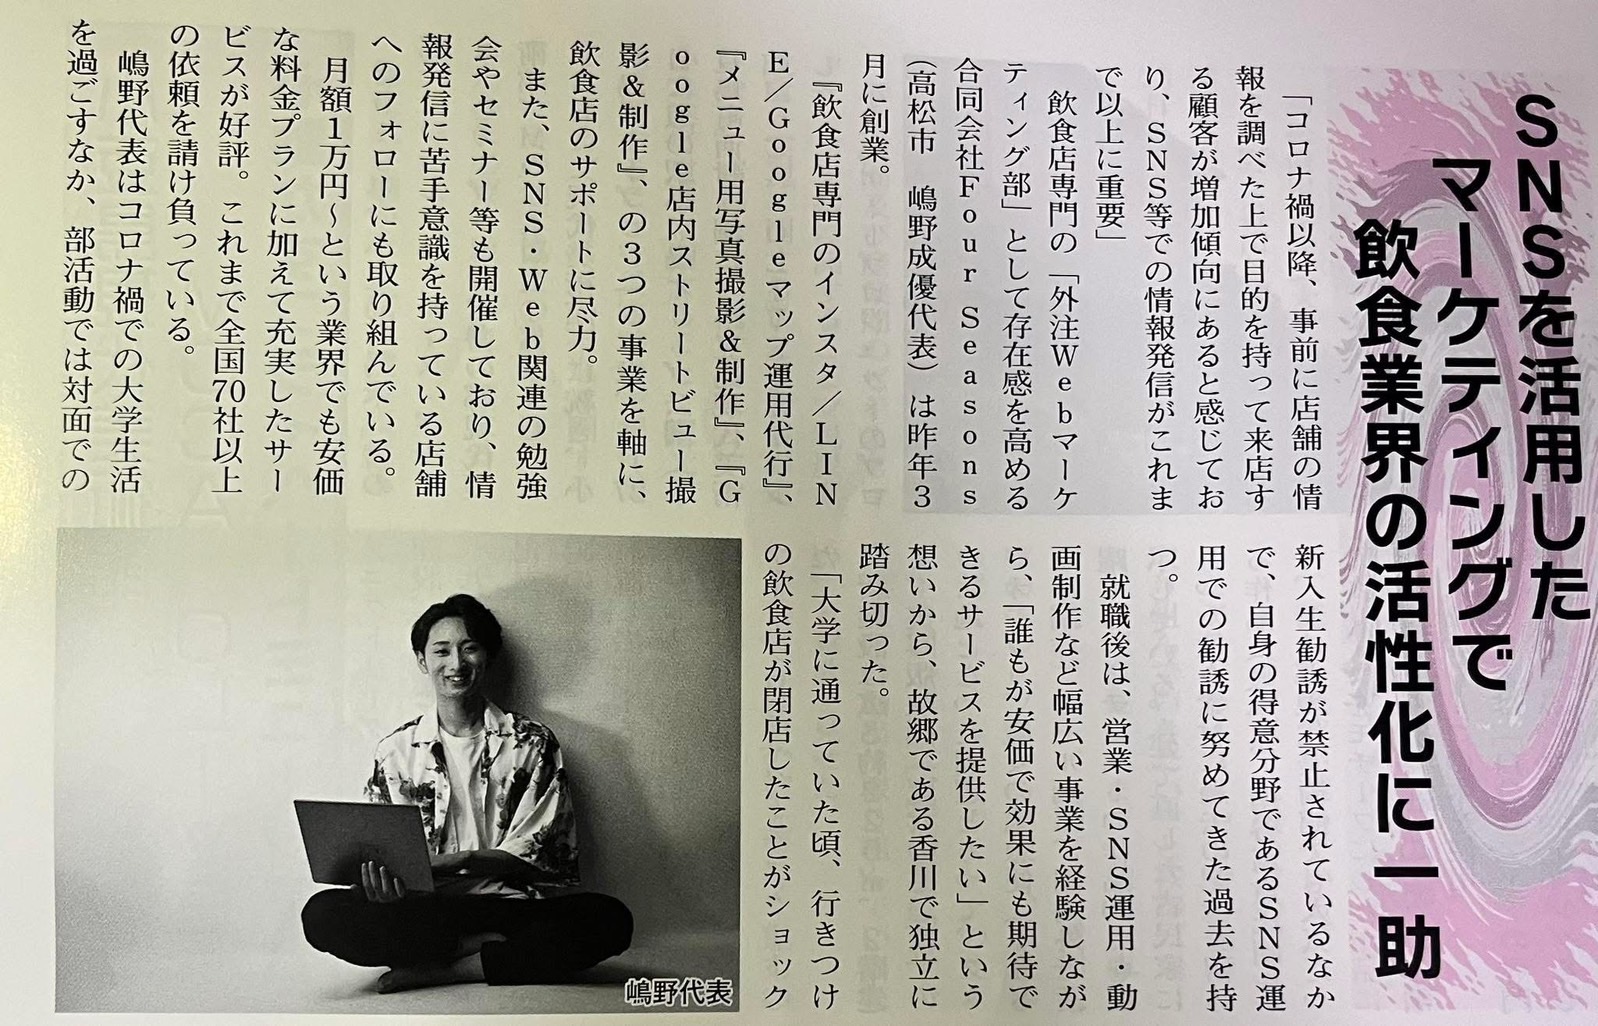 SNSを活用した
マーケティングで
飲食業界の活性化に一助
「コロナ禍以降、事前に店舗の情
報を調べた上で目的を持って来店す
る顧客が増加傾向にあると感じてお
り、SNS等での情報発信がこれま
で以上に重要」
飲食店専門の「外注Webマーケ
ティング部」として存在感を高める
合同会社Four Seasons
（高松市　嶋野成優代表）は昨年3
月に創業。
『飲食店専門のインスタ／LIN
E／Googleマップ運用代行』、
『メニュー用写真撮影&制作』、『G
oogle店内ストリートビュー撮
影&制作』、の3つの事業を軸に、
飲食店のサポートに尽力。
また、SNS・Web関連の勉強
会やセミナー等も開催しており、情
報発信に苦手意識を持っている店舗
へのフォローにも取り組んでいる。
月額1万円～という業界でも安価
な料金プランに加えて充実したサー
ビスが好評。これまで全国70社以上
の依頼を請け負っている。
嶋野代表はコロナ禍での大学生活
を過ごすなか、部活動では対面での
新入生勧誘が禁止されているなか
で、自身の得意分野であるSNS運
用での勧誘に努めてきた過去を持
つ。
就職後は、営業・SNS運用・動
画制作など幅広い事業を経験しなが
ら、「誰もが安価で効果にも期待で
きるサービスを提供したい」という
想いから、故郷である香川で独立に
踏み切った。
「大学に通っていた頃、行きつけ
の飲食店が閉店したことがショック
嶋野代表